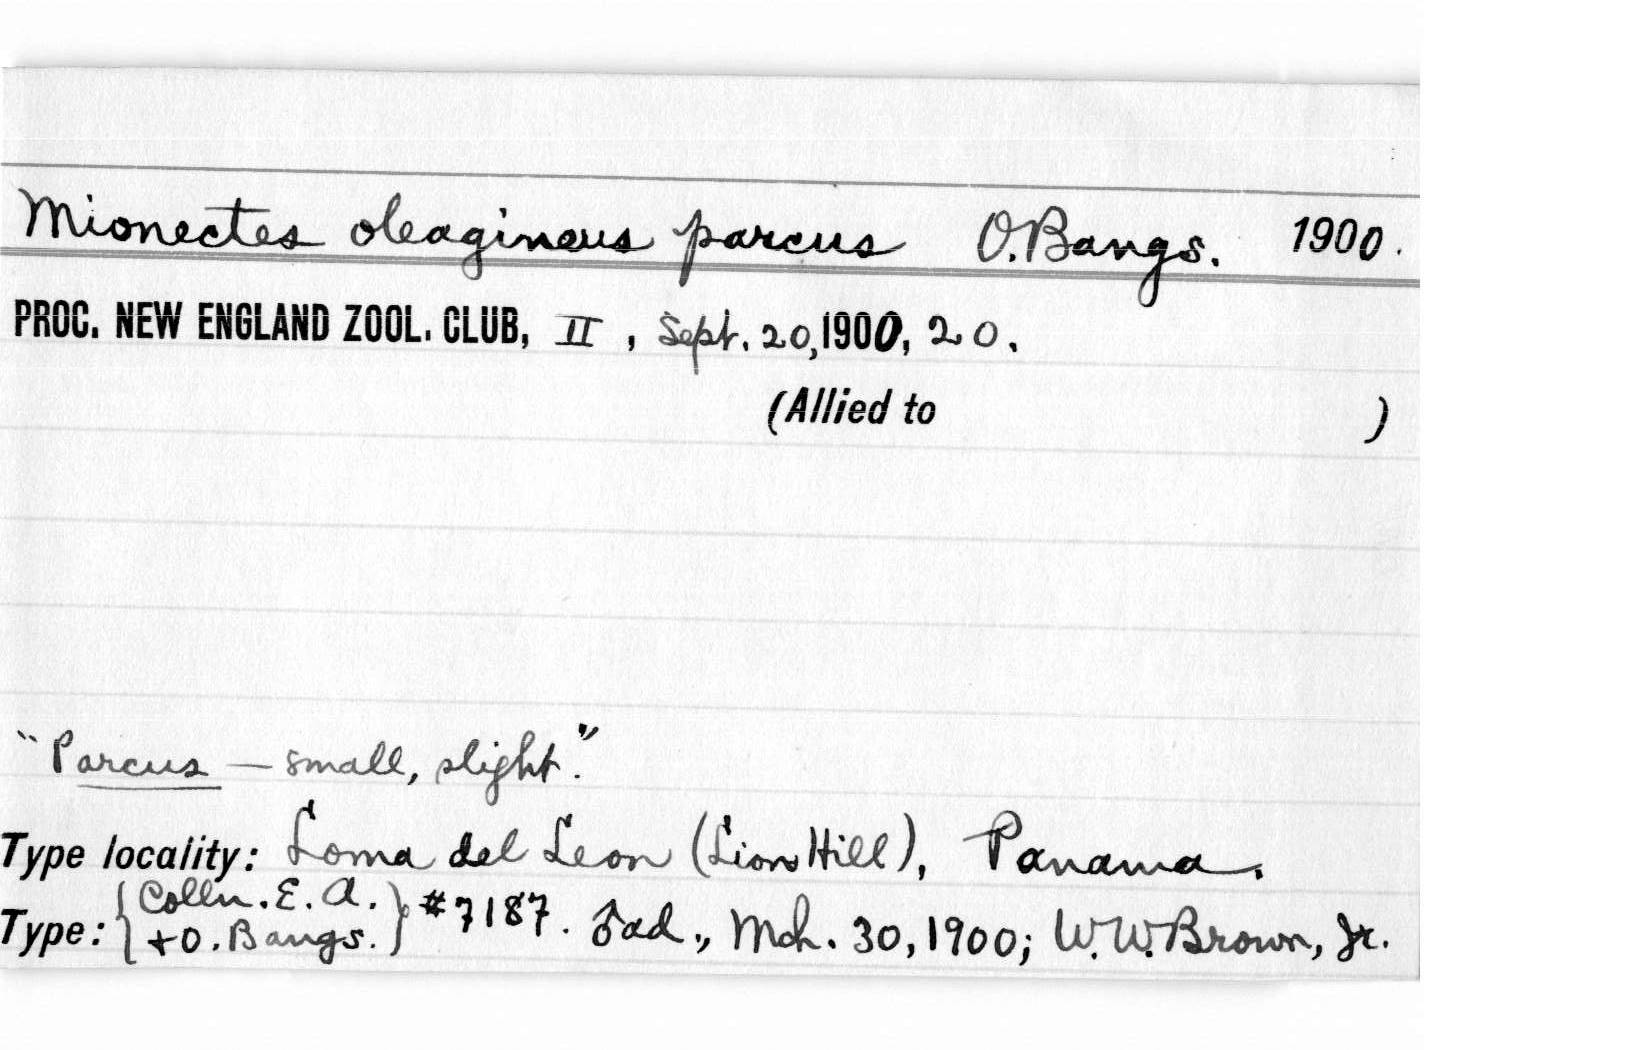 Mionectes oleagineus parcus O. Bangs. 1900.
PROC. NEW ENGLAND ZOOL. CLUB, II, Sept. 20, 1900, 20.
(Allied to )
"Parcus — small, slight."
Type locality: Loma del Leon (Lion Hill), Panama.
Type: {Colln. E. A. + O. Bangs.} #7187. ♂ad., Mch. 30, 1900; W. W. Brown, Jr.